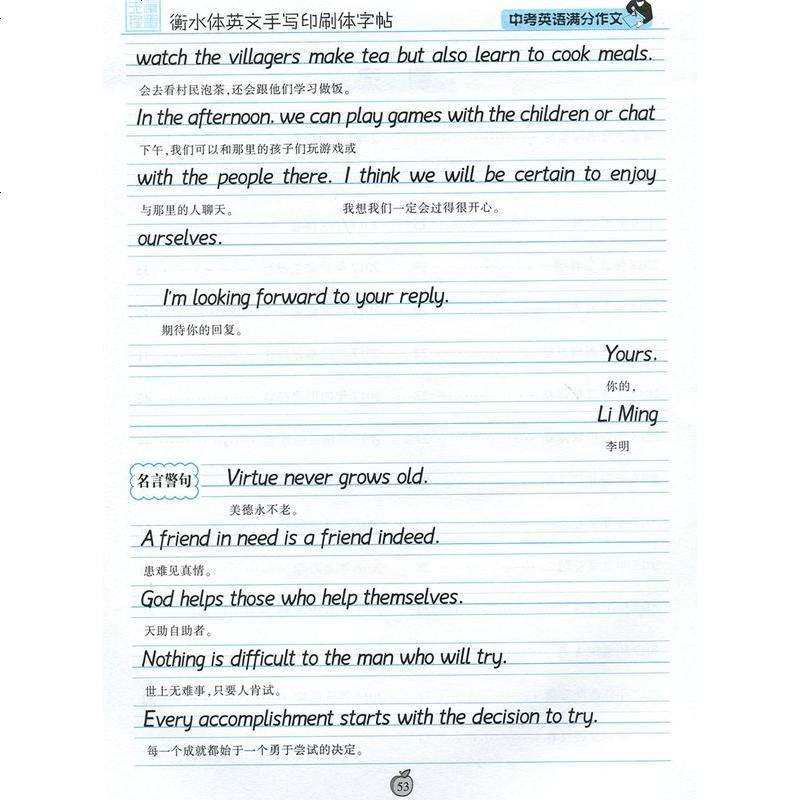 衡水体英文手写印刷体字帖
中考英语满分作文
watch the villagers make tea but also learn to cook meals.
会去看村民泡茶,还会跟他们学习做饭。
In the afternoon. we can play games with the children or chat
下午,我们可以和那里的孩子们玩游戏或
with the people there. I think we will be certain to enjoy
与那里的人聊天。 我想我们一定会过得很开心。
ourselves.
I'm looking forward to your reply.
期待你的回复。
Yours.
你的,
Li Ming
李明
名言警句
Virtue never grows old.
美德永不老。
A friend in need is a friend indeed.
患难见真情。
God helps those who help themselves.
天助自助者。
Nothing is difficult to the man who will try.
世上无难事,只要人肯试。
Every accomplishment starts with the decision to try.
每一个成就都始于一个勇于尝试的决定。
53